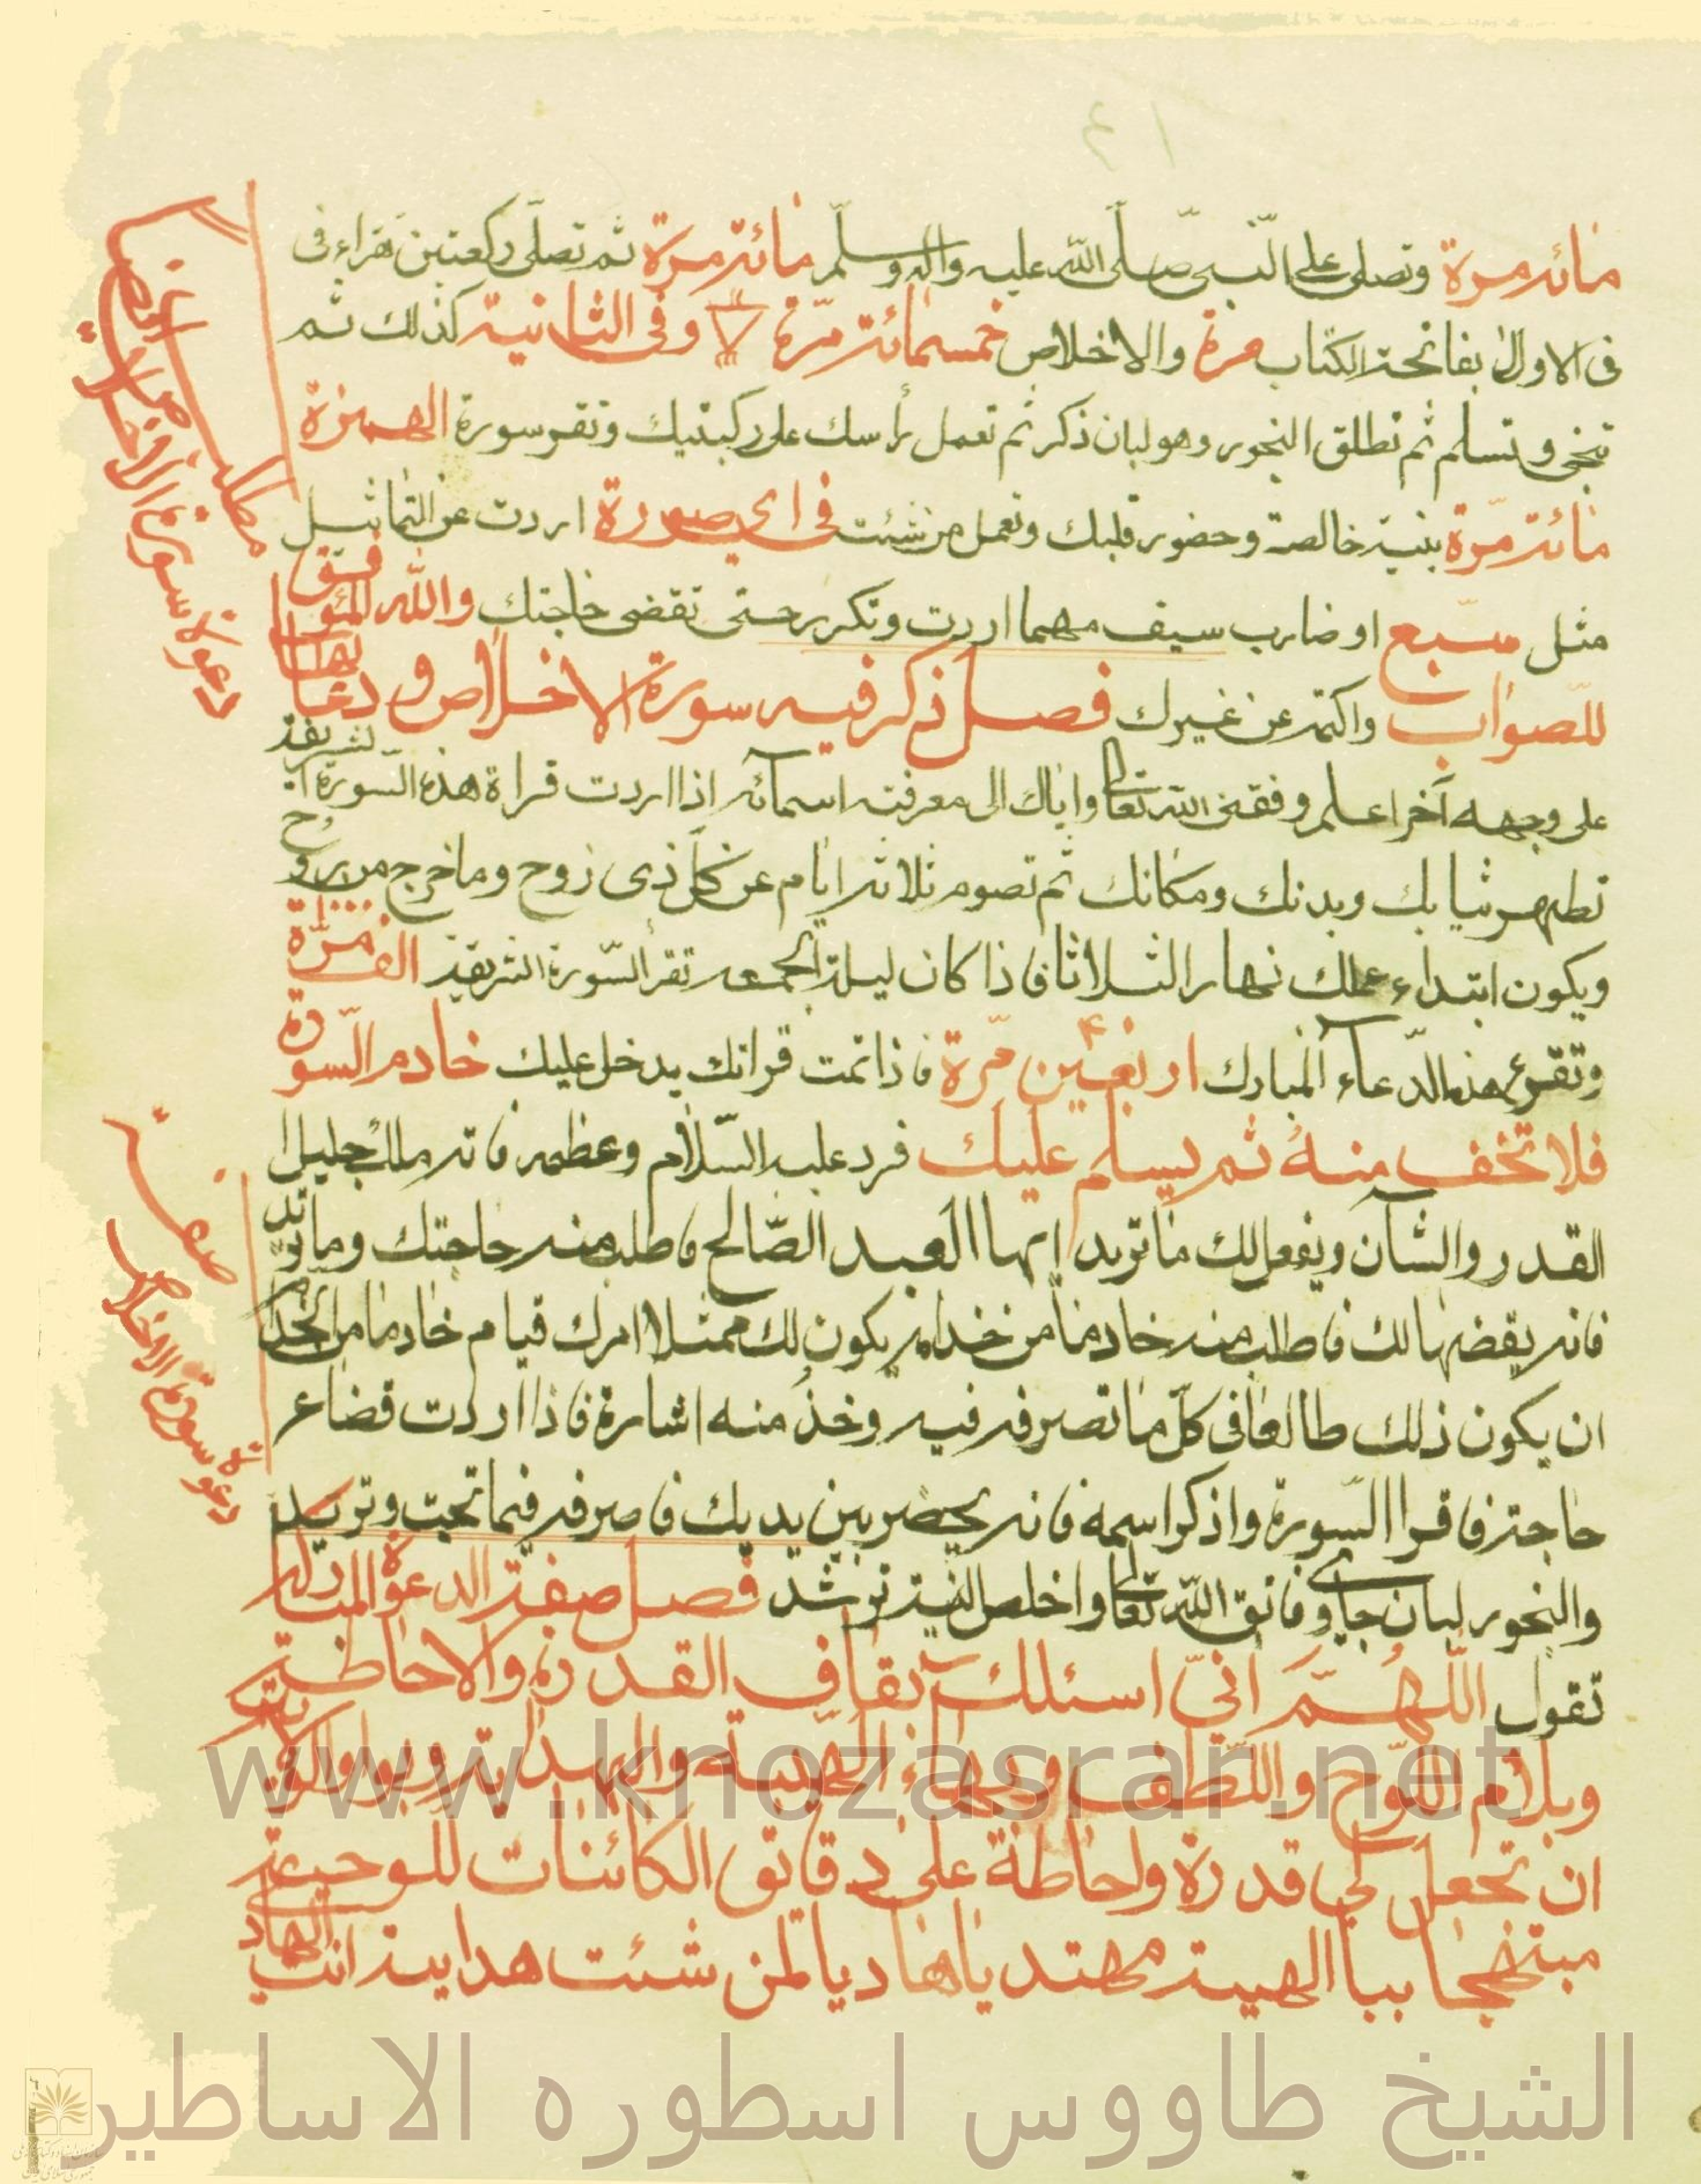 مائة مرة وتصلى على النبى صلى الله عليه واله وسلم مائة مرة ثم تصلى ركعتين تقراء فى
فى الاولى بفاتحة الكتاب مرة والاخلاص خمسمائة مرة وفى الثانية كذلك ثم
وتسلم ثم تطلق البخور وهو لبان ذكر ثم تعمل رأسك على ركبتيك وتقرء سورة الهمزة
مائة مرة بنية خالصة وحضور قلبك وتعمل من شئت فى اى صورة اردت عن التماثيل
مثل سبع او ضارب سيف مهما اردت وتكرر حتى تقضى حاجتك والله الموفق
للصواب واكتمه عن غيرك فصل ذكر فيه سورة الاخلاص و دعائها
على وجهه آخر اعلم وفقنى الله تعالى واياك الى معرفة اسمائه اذا اردت قراة هذه السورة الشريفة
تطهر ثيابك وبدنك ومكانك ثم تصوم ثلاثة ايام عن كل ذى روح وما خرج من روح
ويكون ابتداء عملك نهار الثلاثا فاذا كان ليلة الجمعه تقرأ السورة الشريفة الف مرة
وتقرء هذه الدعاء المبارك اربعين مرة فاذا تمت قرائتك يدخل عليك خادم السورة
فلا تخف منه ثم يسلم عليك فرد عليه السلام وعظمه فانه ملك جليل
القدر والشأن ويفعل لك ما تريد ايها العبد الصالح فاطلب منه حاجتك وما تريد
فانه يقضيها لك فاطلب منه خادما من خدامه يكون لك ممتثلا امرك قيام خادما من الخدام
ان يكون ذلك طالعا فى كل ما تصرفه فيه وخذ منه اشارة فاذا اردت قضاء
حاجة فاقرا السورة واذكر اسمه فانه يحضر بين يديك فاصرفه فيما تحب وتريد
والبخور لبان جاوى فاتق الله تعالى واخلص النية ترشد فصل صفة الدعوة المباركة
تقول اللهم انى اسئلك بقاف القدرة والاحاطة
وبلام اللوح واللطف وبهاء الهيبة والهداية وبواو
ان تجعل لى قدرة واحاطة على دقائق الكائنات
مبتهجا بباء الهيبة مهتد يا هاديا لمن شئت هداية انت الهادى
دعوة سورة الاخلاص
صفة
دعوة سورة الاخلاص
www.knozasrar.net
الشيخ طاووس اسطوره الاساطير